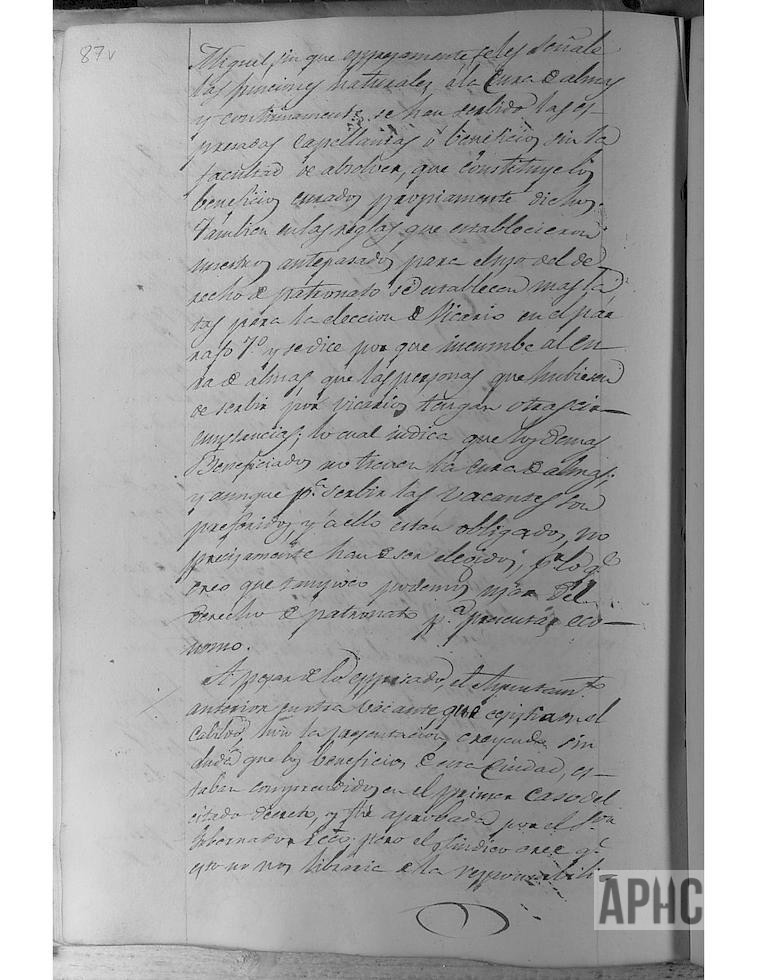 87v
Miguel, sin que expresamente se les señale
las funciones naturales a la cura de almas
y continuamente se han servido las es-
presadas capellanias o beneficios sin la
facultad de absolver, que constituye los
beneficios curados propiamente dichos.
Tambien en las reglas que establecieron
nuestros antepasados para el uso del de
recho de patronato se establecen mas
para la eleccion de Vicario en el pár
rafo 7.º y se dice por que incumbe al cu-
ra de almas, que las personas que hubiesen
de servir por vicarios tengan otras cir-
cunstancias; lo cual indica que los demas
Beneficiados no tienen la cura de almas;
y aunque p.ª servir las vacantes son
preferidos, y a ello están obligados, no
precisamente han de ser elegidos, p.r lo q.e
creo que tampoco podemos usar del
derecho de patronato p.ª presentar eco-
nomo.
A pesar de lo espresado, el Ayuntam.to
anterior en otra vacante que existia en el
Cabildo, hizo la presentacion, creyendo sin
duda que los beneficios de esta Ciudad, es-
taban comprendidos en el primer caso del
citado decreto, y fue aprobada por el S.or
Gobernador Ecco. pero el Sindico cree q.e
esto no nos libraria de la responsabili-
APHC